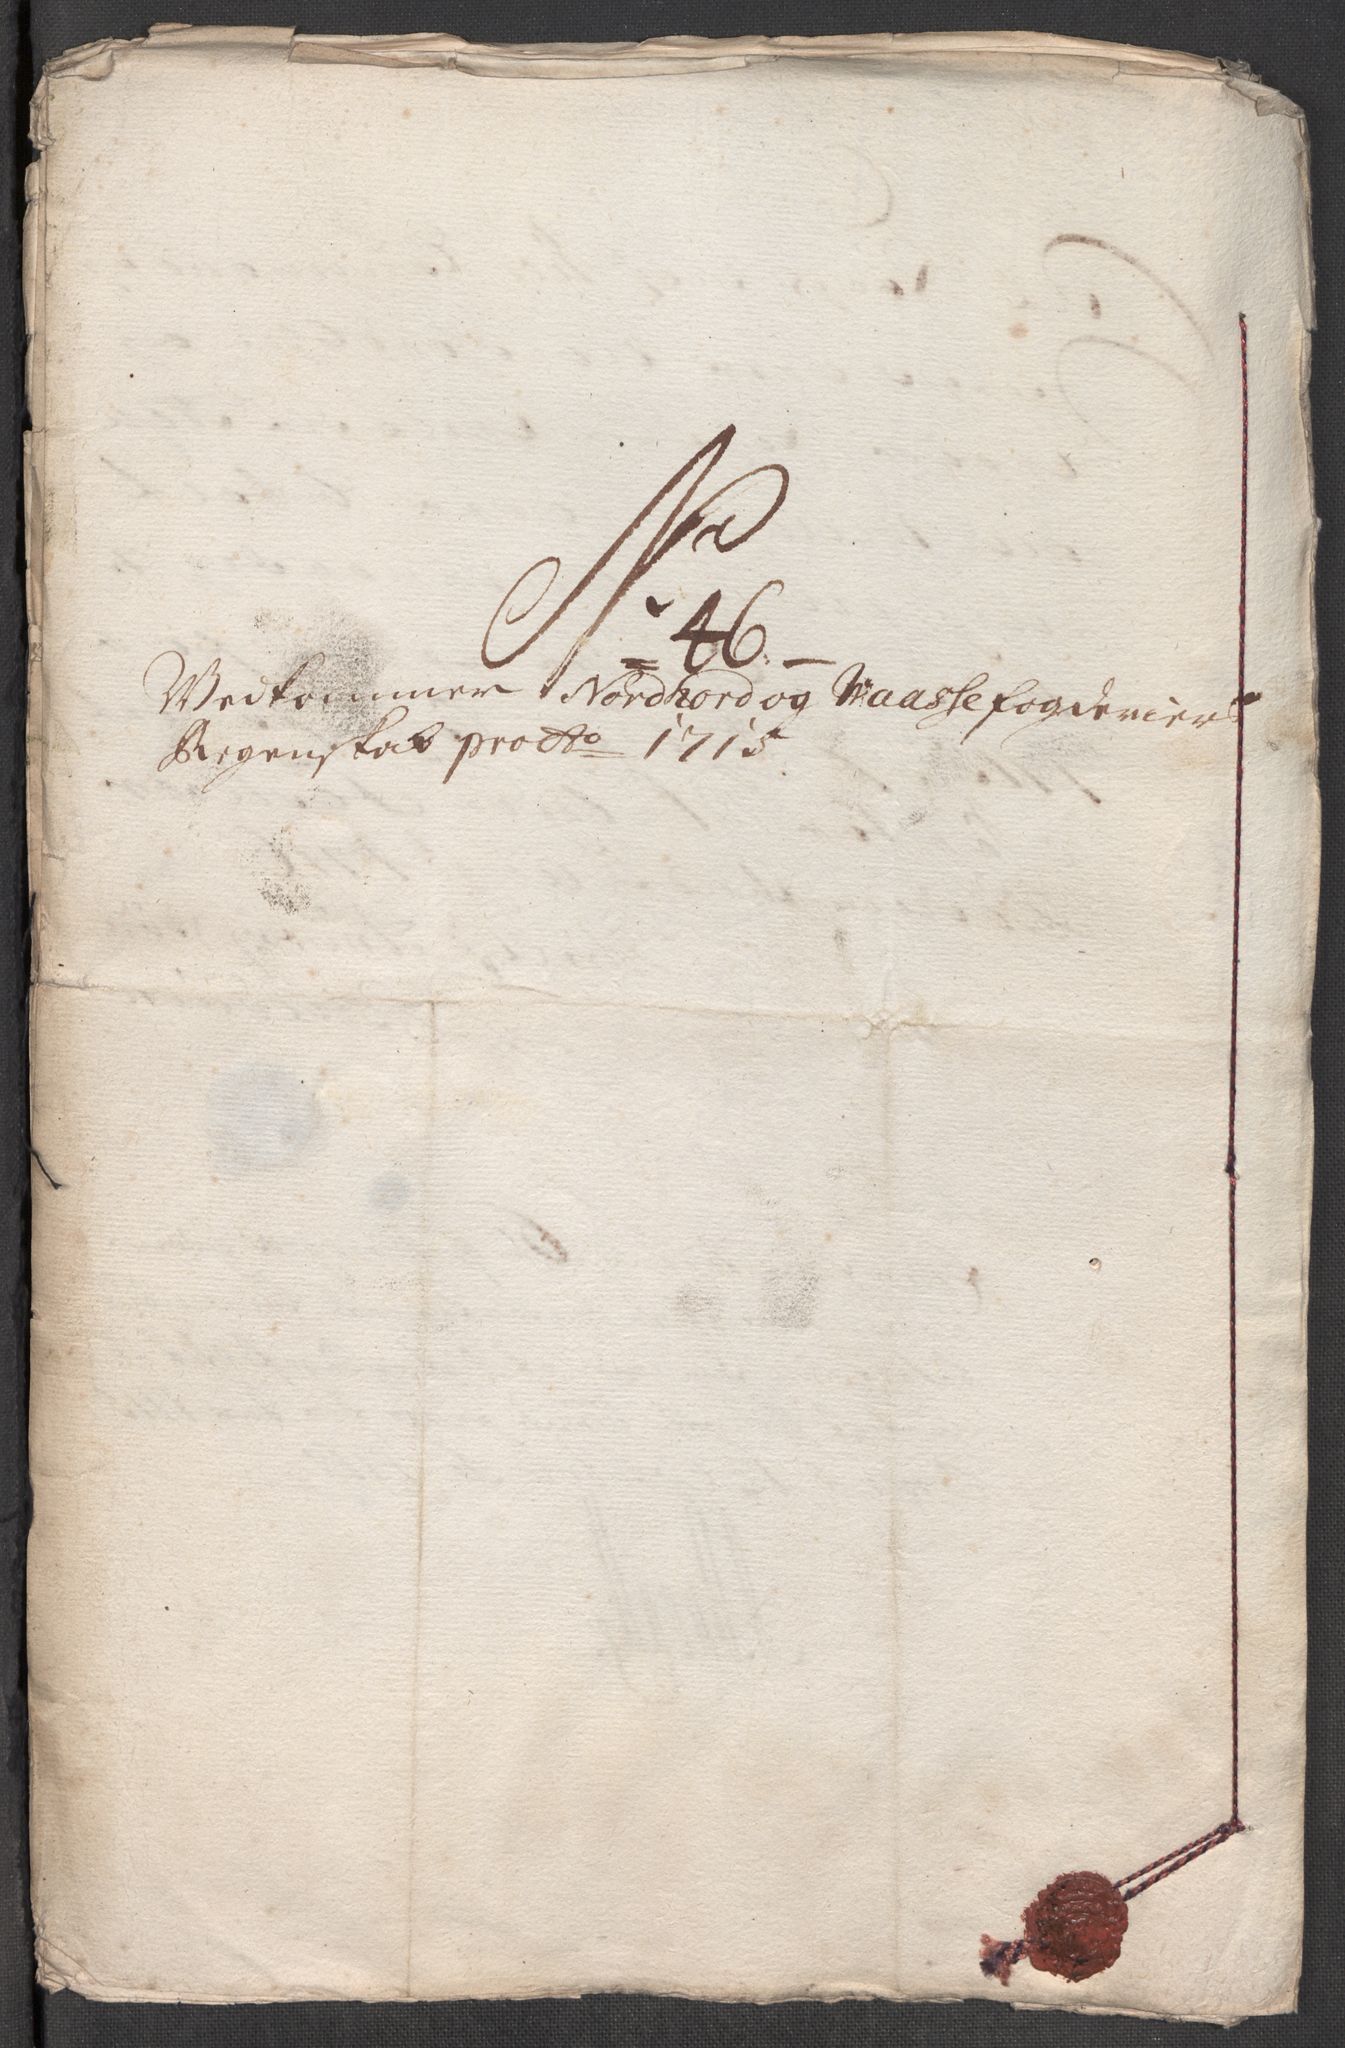 No
46.
Vedkommer Nordhord og Waasse fogderiers
Regenskab pro Ao 1715